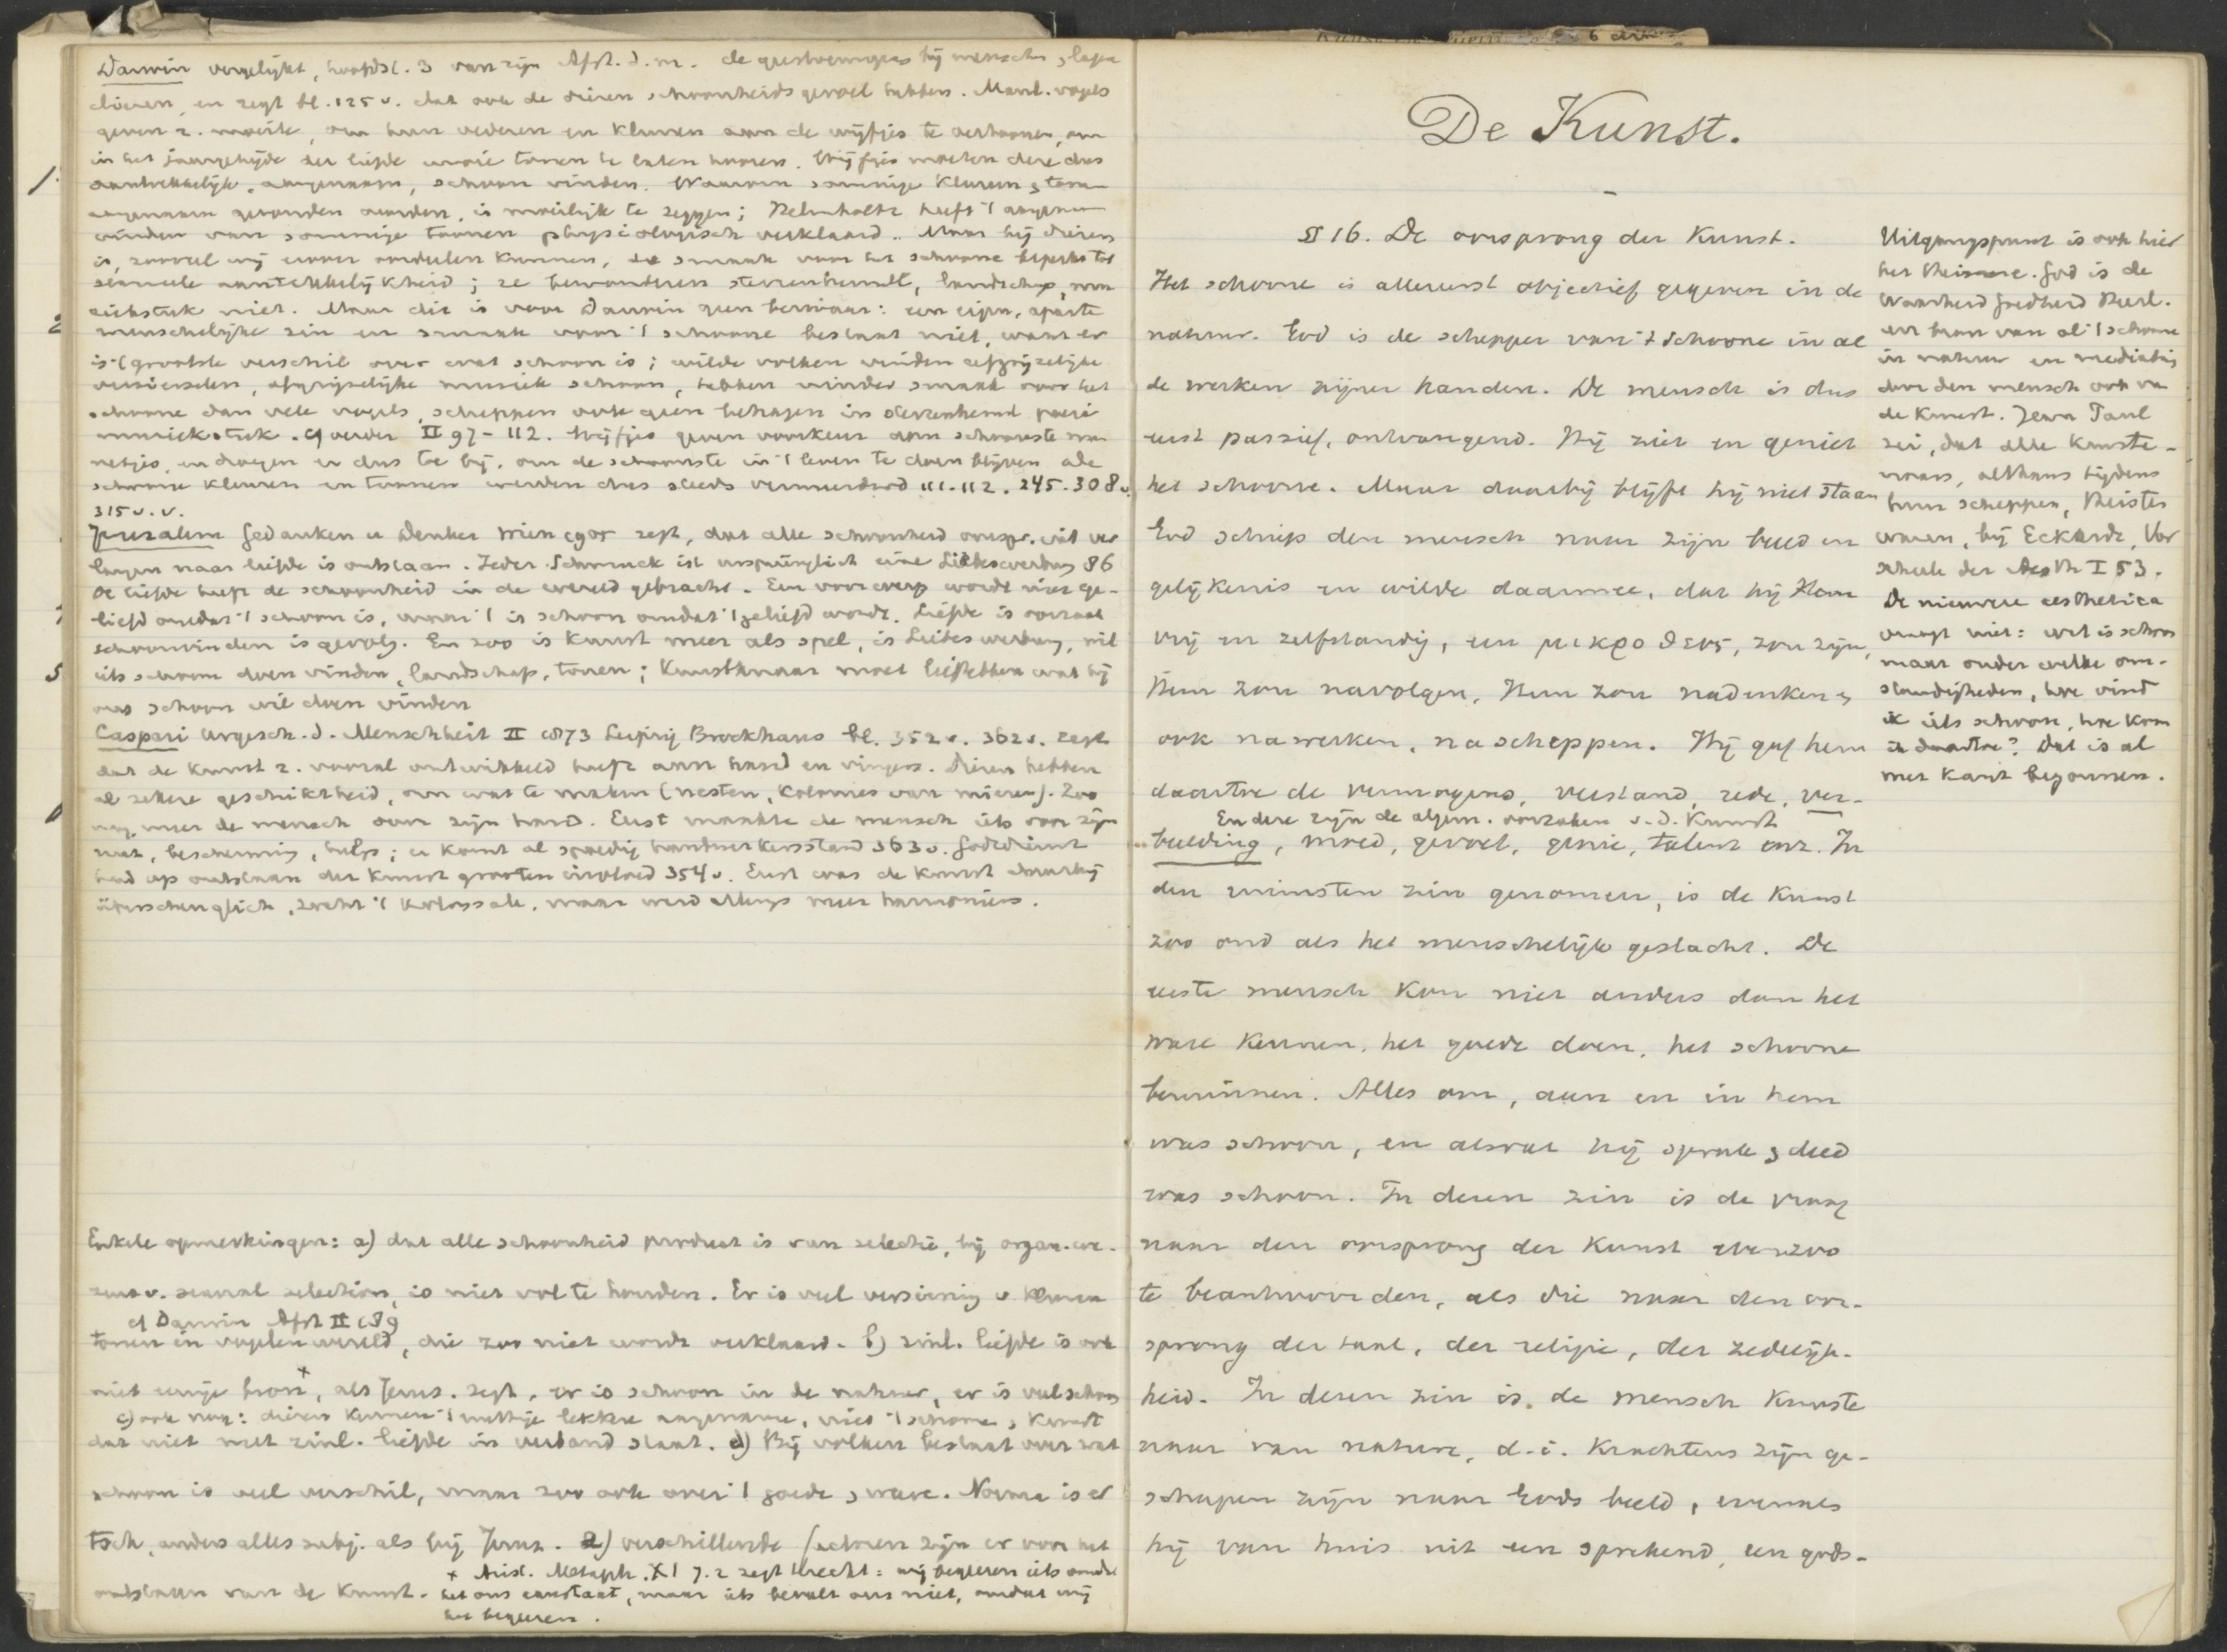 Darwin vergelijkt, hoofdst. 3 van zijn Afst. d. m. de geestvermogens bij menschen & lagere
dieren, en zegt bl. 125 v. dat ook de dieren schoonheidsgevoel hebben. Mannl. vogels
geven z. moeite, om hun vederen en kleuren aan de wijfjes te vertoonen, om
in het jaargetijde der liefde mooie tonen te laten hooren. Wijfjes moeten deze dus
aantrekkelijk, aangenaam, schoon vinden. Waarom sommige kleuren & tonen
aangenaam gevonden worden, is moeilijk te zeggen; Helmholtz heeft 't aangenaam
vinden van sommige toonen physiologisch verklaard. Maar bij dieren
is, zooveel wij erover oordeelen kunnen, de smaak voor het schoone beperkt tot
sexueele aantrekkelijkheid; ze bewonderen sterrenhemel, landschap, mu
ziekstuk niet. Maar dit is voor Darwin geen bezwaar: een eigen, aparte
menschelijke zin en smaak voor 't schoone bestaat niet, want er
is 't grootste verschil over wat schoon is; wilde volken vinden afgrijzelijke
versierselen, afgrijselijke muziek schoon, hebben minder smaak voor het
schoone dan vele vogels, scheppen ook geen behagen in sterrenhemel poezie
muziekstuk. cf verder II 97-112. Wijfjes geven voorkeur aan schoonste man
netjes, en dragen er dus toe bij, om de schoonste in 't leven te doen blijven
schoone kleuren en toonen werden dus steeds vermeerderd 111. 112. 245. 308 v.
315 v. v.
Jerusalem Gedanken u Denker Wien 1905 zegt, dat alle schoonheid oorspr. uit ver
langen naar liefde is ontstaan. Jeder Schmuck ist ursprünglich eine Liebeswerbung 86
De liefde heeft de schoonheid in de wereld gebracht. Een voorwerp wordt niet ge-
liefd omdat 't schoon is, maar 't is schoon omdat 't geliefd wordt. Liefde is oorzaak
schoonvinden is gevolg. En zoo is kunst meer als spel, is Liebeswerbung, wil
iets schoon doen vinden, landschap, tonen; kunstenaar moet liefhebben wat hij
ons schoon wil doen vinden
Caspari Urgesch. d. Menschheit II 1873 Leipzig Brockhaus bl. 352 v. 362 v. zegt
dat de kunst z. vooral ontwikkeld heeft aan hand en vingers. Dieren hebben
al zekere geschiktheid, om wat te maken (nesten, kolonies van mieren). Zoo
nog meer de mensch aan zijn hand. Eerst maakte de mensch iets voor zijn
nut, bescherming, hulp; er komt al spoedig handwerkersstand 363 v. Godsdienst
had op ontstaan der kunst grooten invloed 354 v. Eerst was de kunst daarbij
überschenglich, zocht 't kolossale, maar werd allengs meer harmonieus.
Enkele opmerkingen: a) dat alle schoonheid product is van selectie, bij organ. we-
zens v. sexual selection, is niet vol te houden. Er is veel versiering v kleuren
cf Darwin Afst II 189
tonen in vogelenwereld, die zoo niet wordt verklaard. b) zinl. liefde is ook
niet eenige bron x, als Jerus. zegt, er is schoon in de natuur, er is veel schoon
c) ook nog: dieren kennen 't nuttige lekkere aangename, niet 't schoone, kunst
dat niet met zinl. liefde in verband staat. d) Bij volken bestaat over wat
schoon is veel verschil, maar zoo ook over 't goede & ware. Norma is er
toch, anders alles subj. als bij Jerus. e) verschillende factoren zijn er voor het
x Arist. Metaph. XI 7. 2 zegt terecht: wij begeeren iets omdat
ontstaan van de kunst. het ons aanstaat, maar iets bevalt ons niet, omdat wij
het begeeren.
De Kunst.
§ 16. De oorsprong der Kunst.
Het schoone is allereerst objectief gegeven in de
natuur. God is de schepper van 't schoone in al
de werken zijner handen. De mensch is dus
eerst passief, ontvangend. Hij ziet en geniet
het schoone. Maar daarbij blijft hij niet staan
God schiep den mensch naar zijn beeld en
gelijkenis en wilde daarmee, dat hij Hem
vrij en zelfstandig, een μικροθεος, zou zijn,
Hem zou navolgen, Hem zou nadenken &
ook nawerken, nascheppen. Hij gaf hem
daartoe de vermogens, verstand, rede, ver-
En deze zijn de algem. oorzaken v. d. Kunst
beelding, moed, gevoel, genie, talent enz. In
den ruimsten zin genomen, is de Kunst
zoo oud als het menschelijk geslacht. De
eerste mensch kon niet anders dan het
ware kennen, het goede doen, het schoone
beminnen. Alles om, aan en in hem
was schoon, en alwat hij sprak & deed
was schoon. In dezen zin is de vraag
naar den oorsprong der Kunst evenzoo
te beantwoorden, als die naar den oor-
sprong der taal, der religie, der zedelijk-
heid. In dezen zin is de mensch kunste
naar van nature, d. i. krachtens zijn ge-
schapen zijn naar Gods beeld, evenals
hij van huis uit een sprekend, een gods-
Uitgangspunt is ook hier
het theisme. God is de
Waarheid Goedheid Heerl.
en bron van al 't schoone
in natuur en mediatie
door den mensch ook van
de kunst. Jean Paul
zei, dat alle kunste-
naars, althans tijdens
hun scheppen, theisten
waren, bij Eckardt, Vor
schule der Aesth I 53.
De nieuwere aesthetica
vraagt niet: wat is schoon
maar onder welke om-
standigheden, hoe vind
ik iets schoon, hoe kom
ik daartoe? Dat is al
met Kant begonnen.